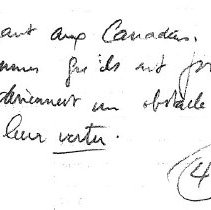 ant aux Canadiens.
qu'ils ont
deviennent un obstacle
leur vertu.
(4